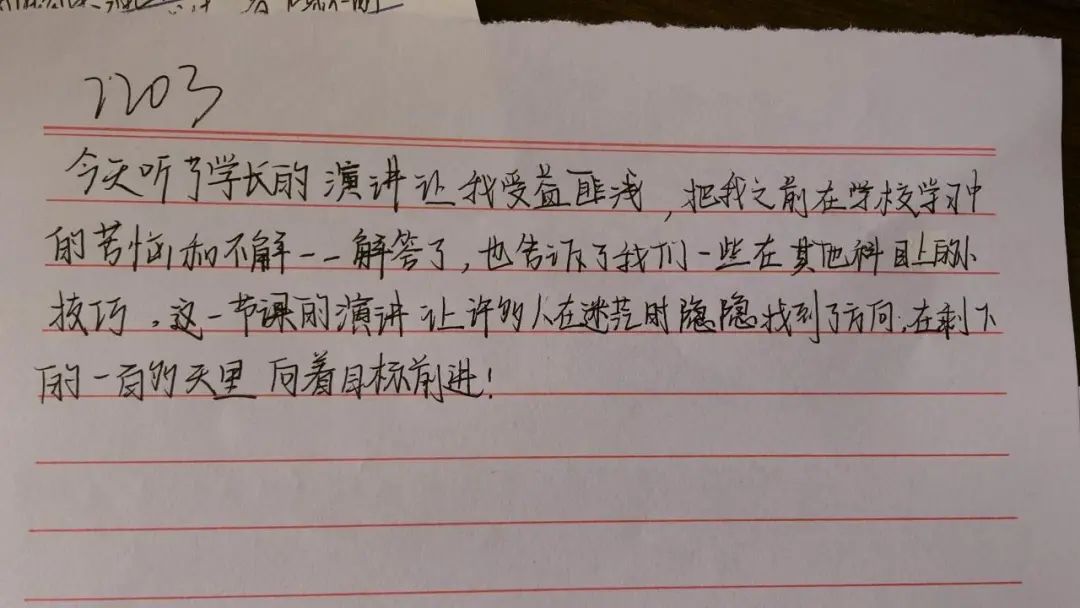 2203
今天听了学长的演讲让我受益匪浅，把我之前在学校学习中
的苦恼和不解一一解答了，也告诉了我们一些在其他科目上的小
技巧，这一节课的演讲让许多人在迷茫时隐隐找到了方向，在剩下
的一百多天里向着目标前进！